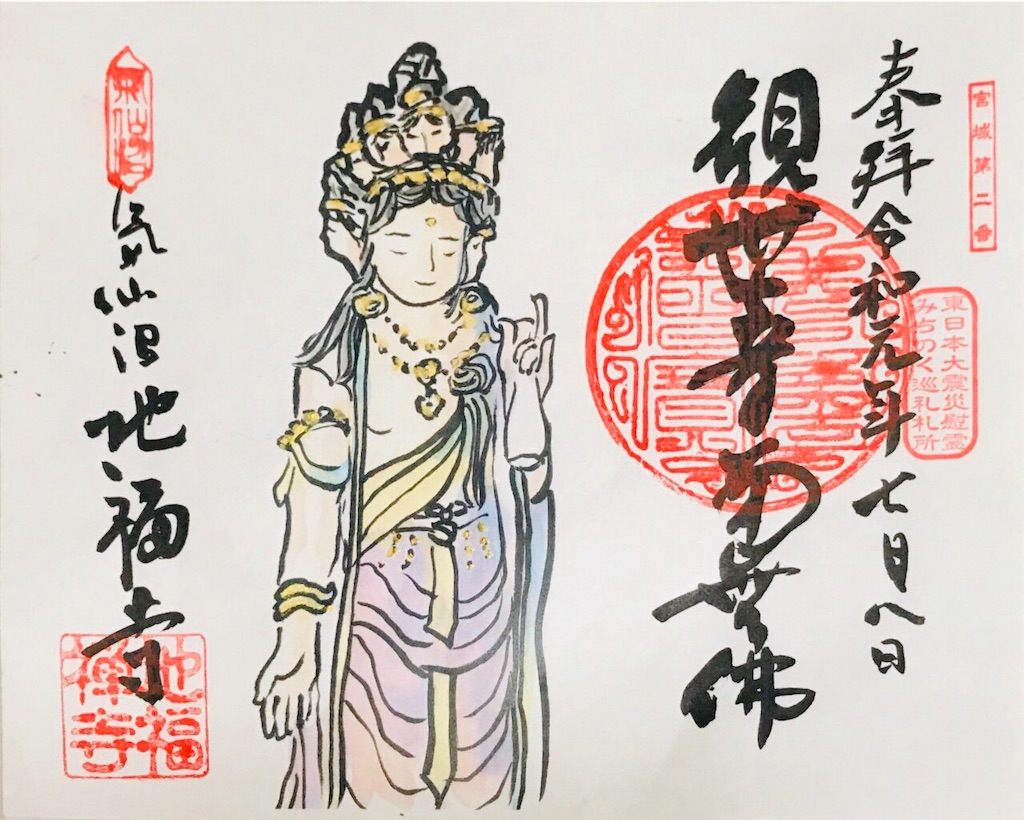 宮城第二番
東日本大震災慰霊
みちのく巡礼札所
奉拝令和元年七月八日
観世音南無佛
氣仙沼地福寺
地福
禅寺